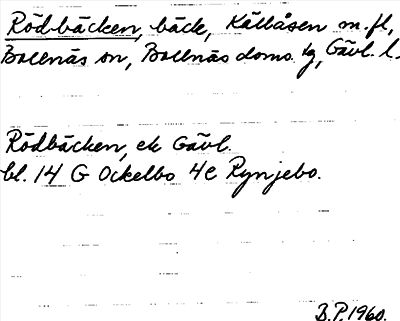 Rödbäcken, bäck, Kälbåsen m.fl,
Bollnäs sn, Bollnäs doms. tg, Gävl. l.
Rödbäcken, ek Gävl.
bl. 14 G Ockelbo 4c Rynjebo.
B.P. 1960.